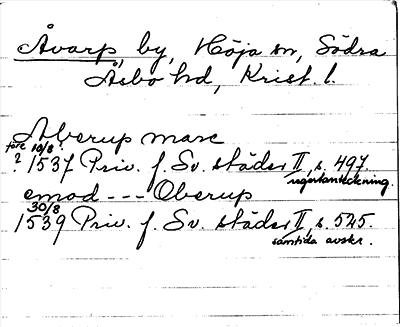 Åvarp, by, Höja sn, Södra
Åsbo hd, Krist. l.
Aberup marc
före 10/8 ?
? 1537 Priv. f. Sv. städer II, s. 497.
regestanteckning.
emod --- Oberup
30/8
1539 Priv. f. Sv. städer II, s. 525.
samtida avskr.